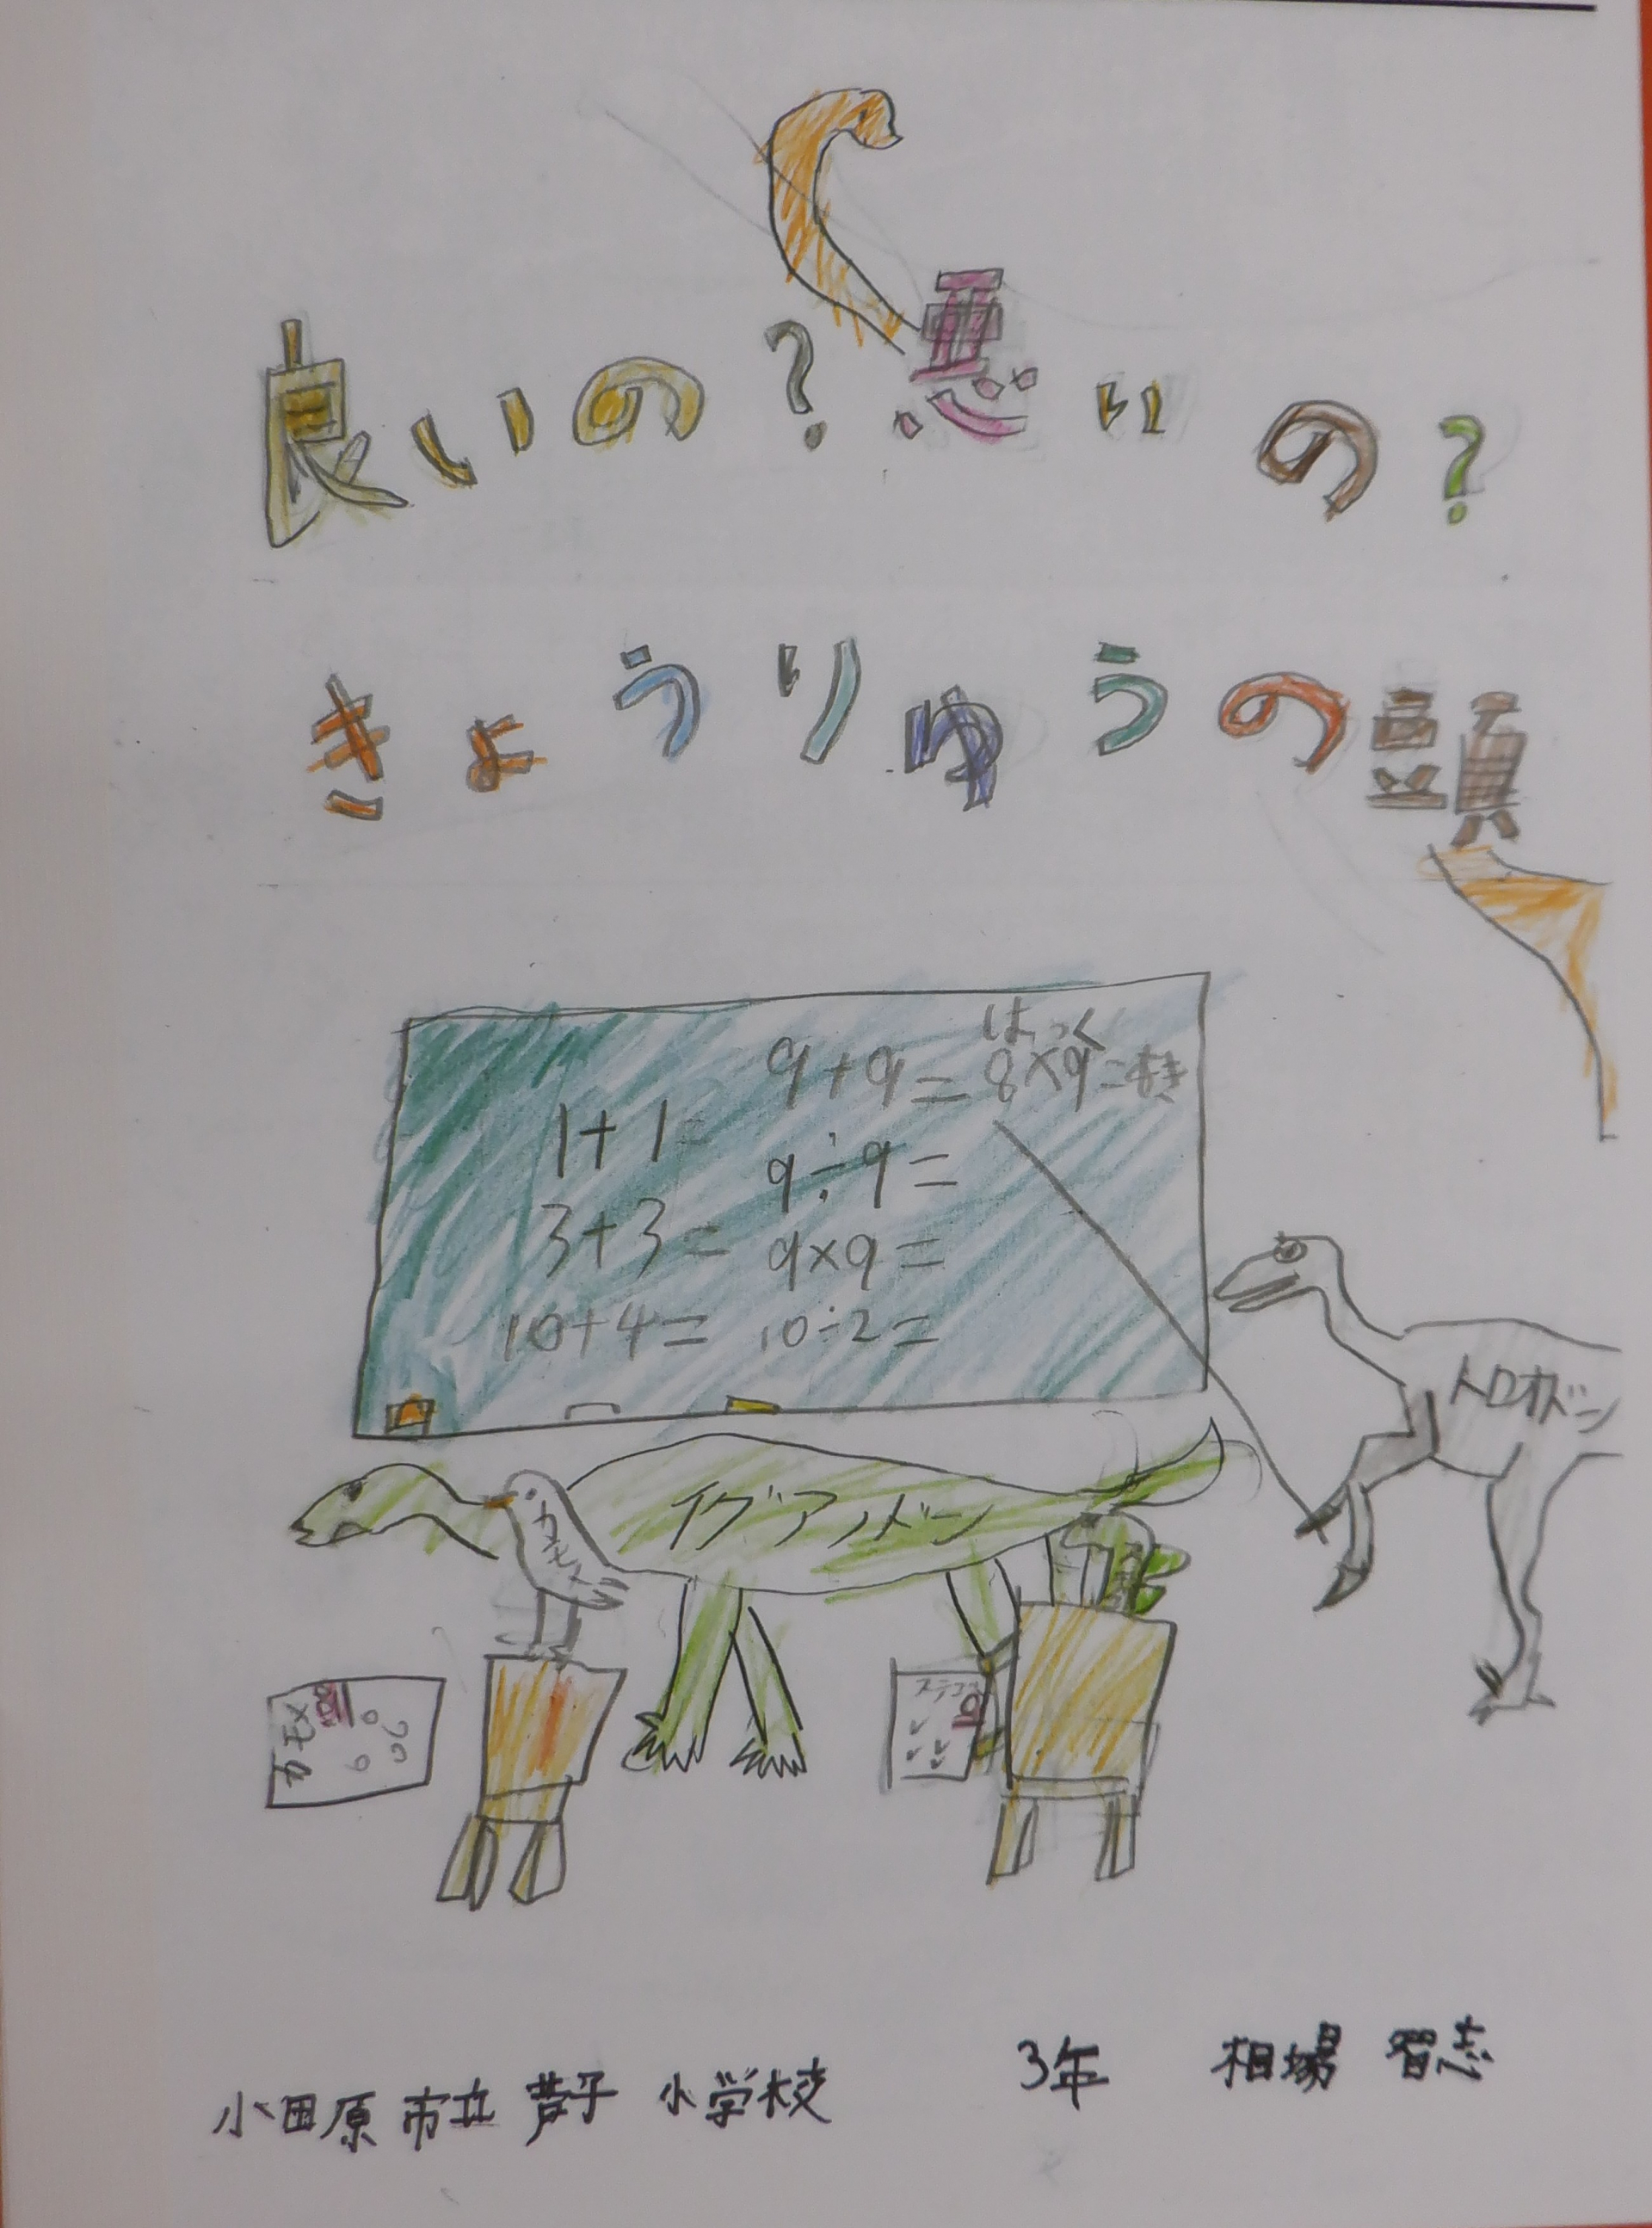 良いの?悪いの?
きょうりゅうの頭
はっく
9+9= 8×9=
1+1=
9÷9=
3+3=
9×9=
10+4= 10÷2=
トロオドン
イグアノドン
カモメ
カモメ
ステゴ
小田原市立 芦子 小学校 3年 相場 智志